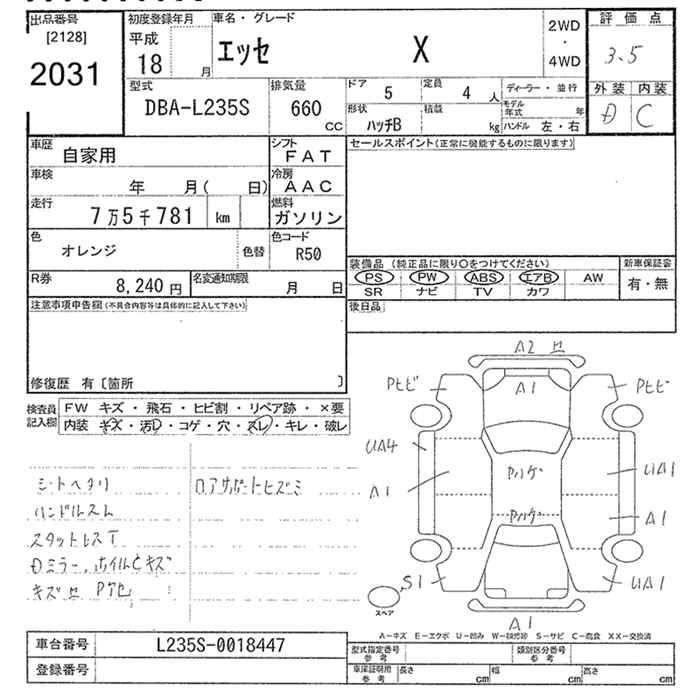 出品番号
[2128]
2031
初度登録年月
平成
18 月
車名・グレード
エッセ X
2WD
・
4WD
評価点
3.5
外装 内装
D C
型式
DBA-L235S
排気量
660
CC
ドア 5
定員 4 人
形状 ハッチB
積載 kg
ディーラー・並行
モデル年式 年
ハンドル 左・右
車歴 自家用
シフト FAT
車検 年 月( 日)
冷房 AAC
走行 7万5千781 km
燃料 ガソリン
色 オレンジ 色替
色コード R50
R券 8,240円
名変通知期限 月 日
セールスポイント(正常に機能するものに限ります)
装備品 (純正品に限り○をつけてください)
PS PW ABS エアB AW
SR ナビ TV カワ
新車保証書
有・無
後日品
注意事項申告欄(不具合内容等は具体的に記入して下さい)
修復歴 有〔箇所 〕
検査員記入欄
FW キズ・飛石・ヒビ割・リペア跡・×要
内装 キズ・汚レ・コゲ・穴・スレ・キレ・破レ
シートヘタリ
ハンドルスレ
スタットレスT
Dミラー、ホイルCキズ
キズ
ロアサポートヒズミ
A2
A1
Pヒビ
Pヒビ
UA4
A1
Pハゲ
Pハゲ
UA1
A1
S1
UA1
A1
スペア
A-キズ E-エクボ U-凹み W-補修跡 S-サビ C-腐食 XX-交換済
車台番号 L235S-0018447
登録番号
型式指定番号 参考
類別区分番号 参考
車庫証明用 参考
長さ cm
幅 cm
高さ cm